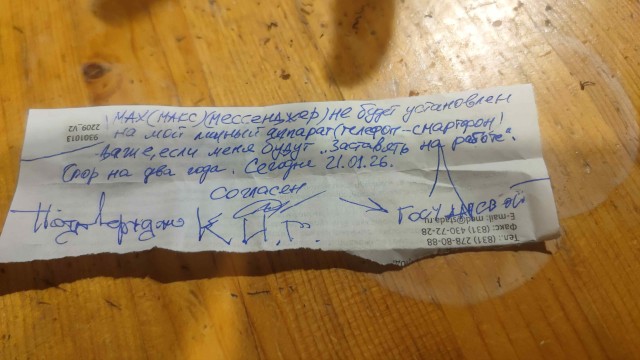 MAX(МАКС)(мессенджер) не будет установлен
на мой личный аппарат(телефон-смартфон)!
Даже, если меня будут „Заставлять на работе".
Спор на два года. Сегодня 21.01.26.
Согласен
Подтверждаю К.И.Г.
9301013
2209_V2
Тел.: (831) 278-80-88
Факс: (831) 430-72-28
E-mail: med@stada.ru